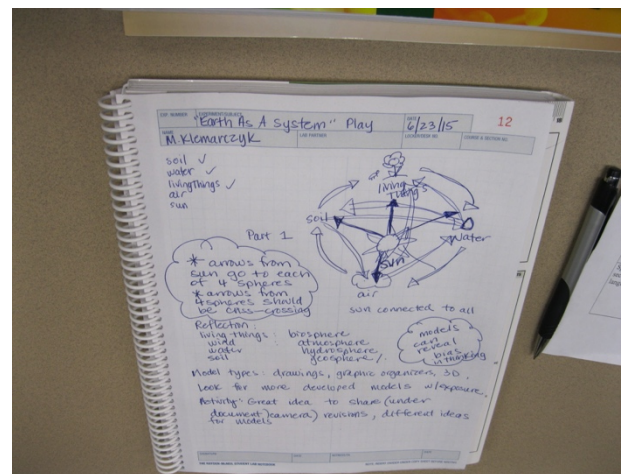 EXP. NUMBER
EXPERIMENT/SUBJECT
"Earth As A System" Play
DATE
6/23/15
12
NAME
M. Klemarczyk
LAB PARTNER
COURSE & SECTION NO.
soil ✓
water ✓
living things ✓
air
sun
living things
soil
water
sun
air
Part 1
* arrows from
sun go to each
of 4 spheres
* arrows from
4 spheres should
be criss-crossing
sun connected to all
Reflection:
living things : biosphere
wind : atmosphere
water : hydrosphere
soil : geosphere
models
can
reveal
bias
in thinking
Model types: drawings, graphic organizers, 3D.
Look for more developed models w/exposure.
Activity: Great idea to share (under
document camera) revisions, different ideas
for models